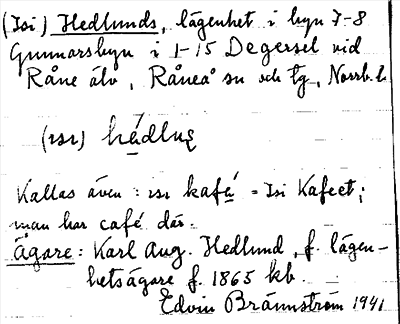 (Isi) Hedlunds, lägenhet i byn 7-8
Gunnarsbyn i 1-15 Degersel vid
Råne älv, Råneå sn och tg, Norrb. l.
(ısı) hädlus
Kallas även: ısı kafä = Isi Kafeet;
man har café där.
Ägare: Karl Aug. Hedlund, f. lägen-
hetsägare f. 1865 kb.
Edvin Brännström 1941